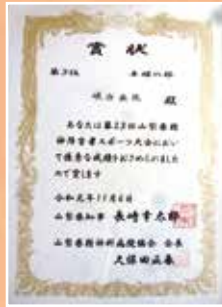 賞状
第3位
殿
あなたは第23回山梨県精
神障害者スポーツ大会におい
て優秀な成績をおさめられました
ので賞します
令和元年11月6日
山梨県知事 長崎幸太郎
山梨県精神科病院協会 会長
久保田正春